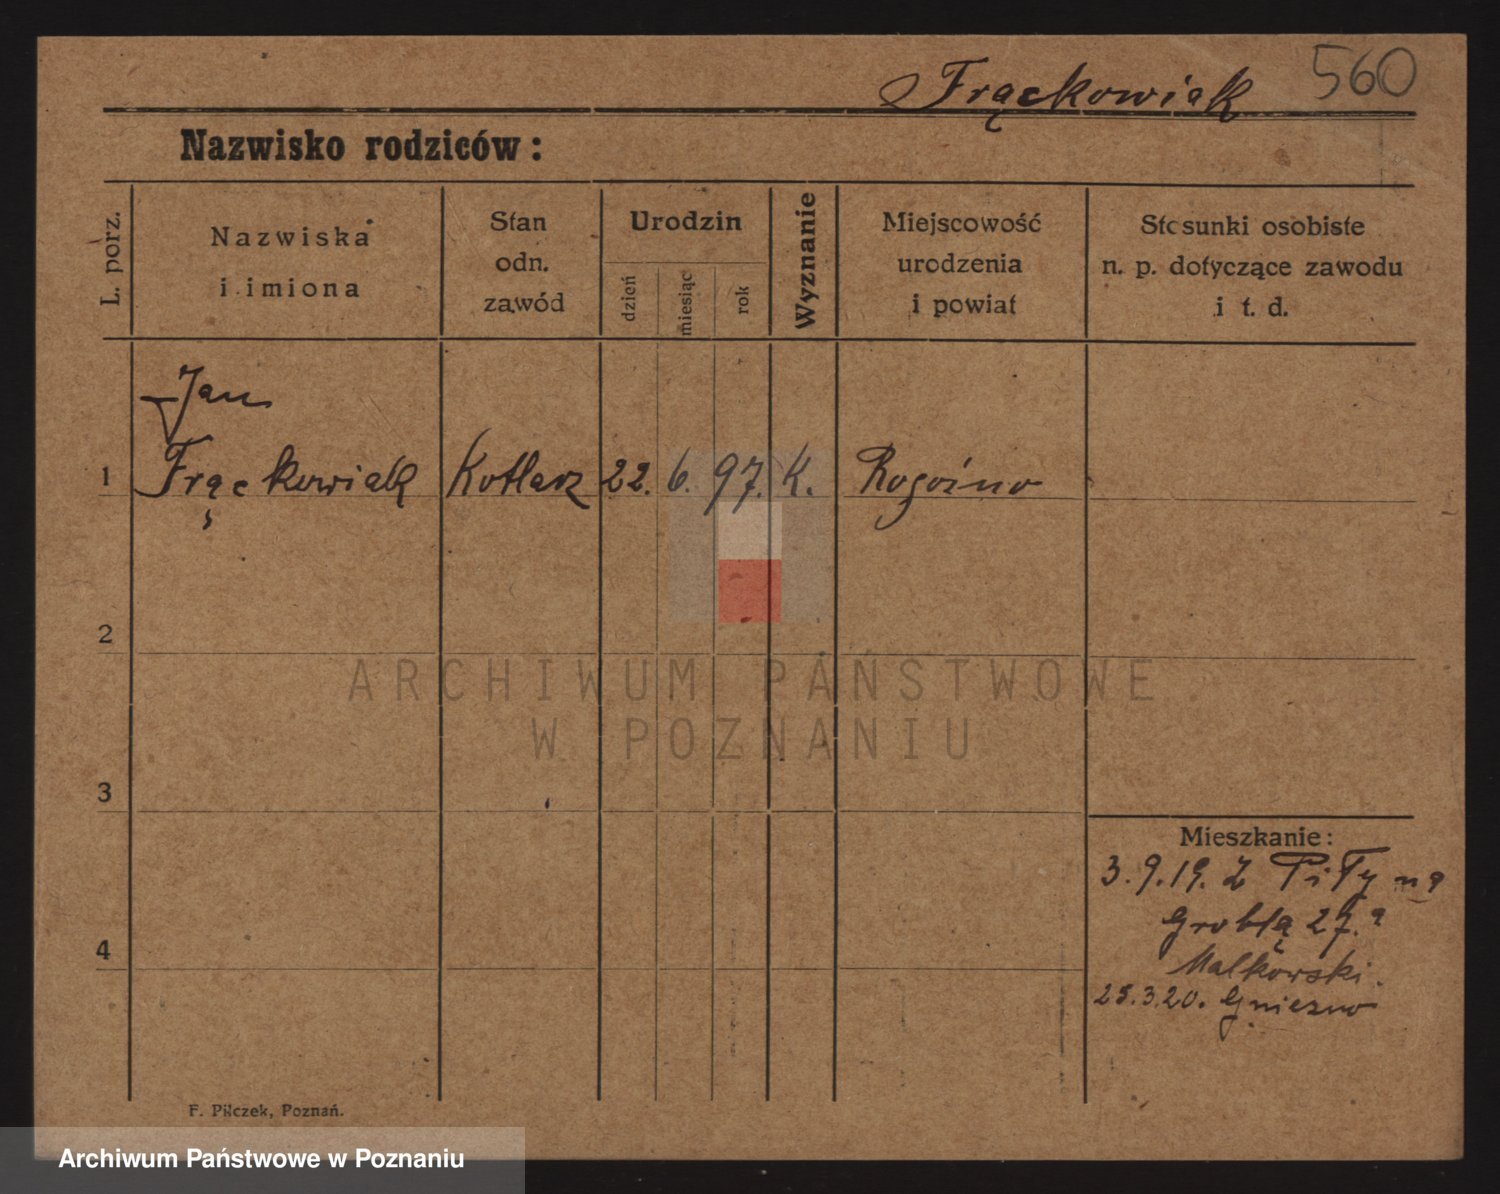 Frąckowiak 560
Nazwisko rodziców:
L. porz.
Nazwiska
i imiona
Stan
odn.
zawód
Urodzin
dzień
miesiąc
rok
Wyznanie
Miejscowość
urodzenia
i powiat
Stosunki osobiste
n. p. dotyczące zawodu
i t. d.
Jan
1 Frąckowiak Kotlarz 22. 6. 97. K. Rogoźno
2
ARCHIWUM PAŃSTWOWE
W POZNANIU
3
Mieszkanie:
3.9.19. Z Piły na
Groblą 27.a
4
Malkowski.
25.3.20. Gniezno
F. Pilczek, Poznań.
Archiwum Państwowe w Poznaniu